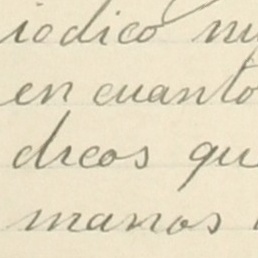 iodico
en cuanto
dreos qu
manos